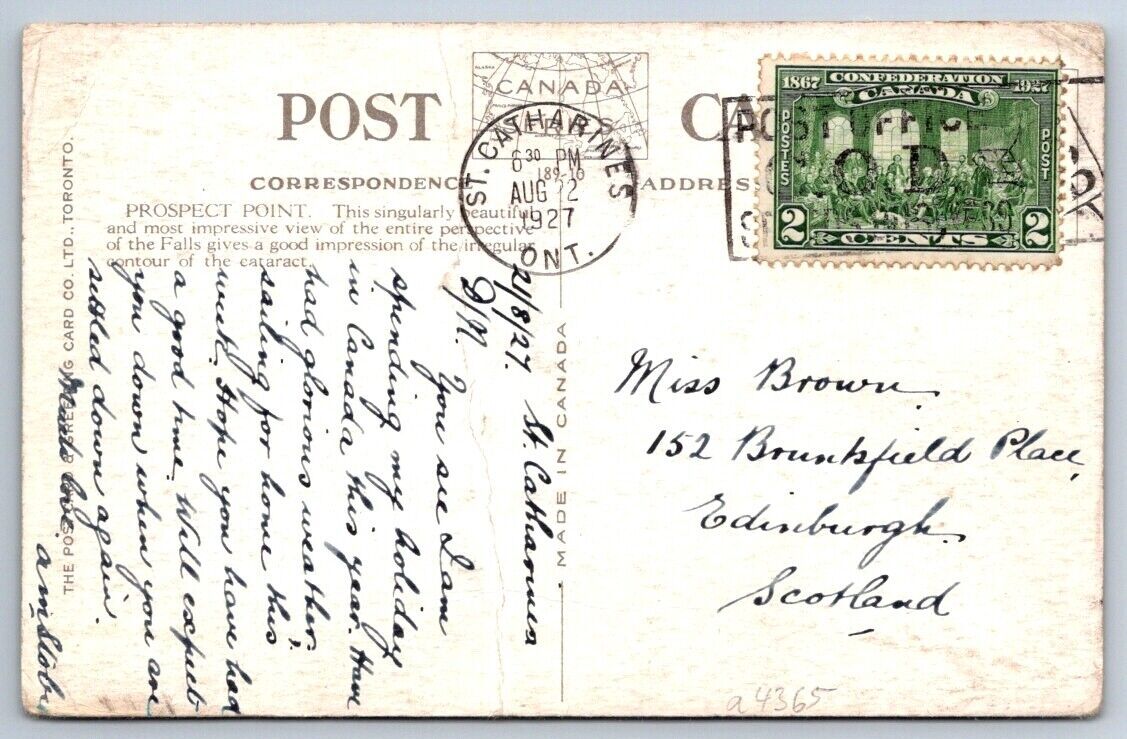 POST CA
CANADA
CORRESPONDENCE
ADDRESS
PROSPECT POINT. This singularly beautiful
and most impressive view of the entire perspective
of the Falls gives a good impression of the irregular
contour of the cataract.
ST. CATHARINES
6 30 PM
189-16
AUG 12
1927
ONT.
1867 CONFEDERATION 1927
CANADA
POSTES
POST
2 CENTS 2
POST OFFICE
C.O.D.
MADE IN CANADA
CARD CO. LTD., TORONTO.
St. Catharines
2/8/27.
You see I am
spending my holiday
in Canada this year. Have
had glorious weather,
sailing for home this
week. Hope you have had
a good time. Will expect
you down when you are
settled down again.
Much love.
Miss Brown
152 Bruntsfield Place,
Edinburgh.
Scotland
a4365